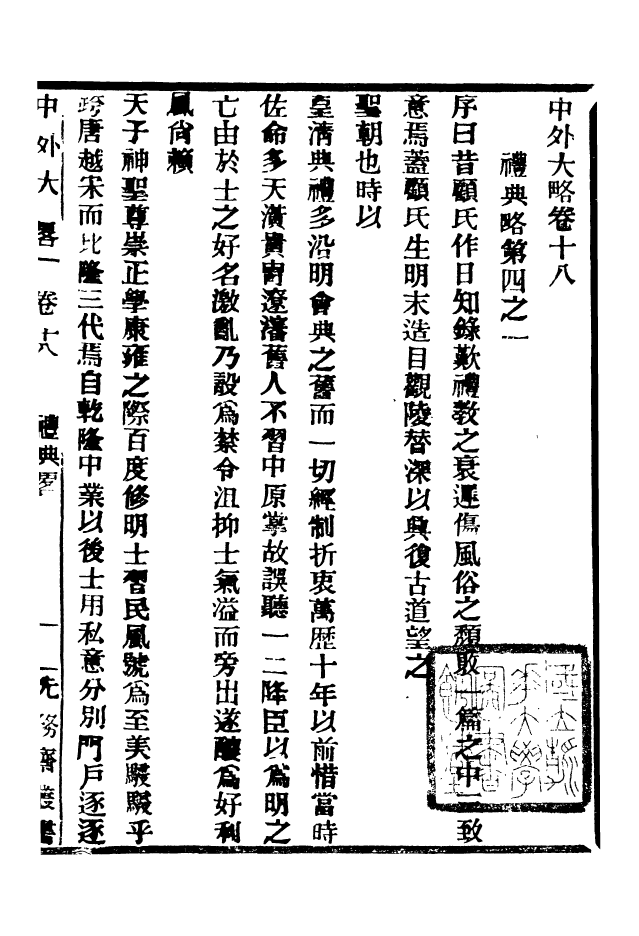 中外大略卷十八
禮典略第四之一
序曰昔顧氏作日知錄歎禮教之衰遲傷風俗之頹敗一篇之中三致
意焉蓋顧氏生明末造目觀陵替深以興復古道望之
聖朝也時以
皇清典禮多沿明會典之舊而一切經制折衷萬歷十年以前惜當時
佐命多天潢貴胄遼瀋舊人不習中原掌故誤聽一二降臣以爲明之
亡由於士之好名激亂乃設爲禁令沮抑士氣溢而旁出遂釀爲好利
風尙賴
天子神聖尊崇正學康雍之際百度修明士習民風號爲至美駸駸乎
跨唐越宋而比隆三代焉自乾隆中業以後士用私意分別門戶逐逐
中外大畧一 卷十八 禮典畧 一 一 先務齋叢書